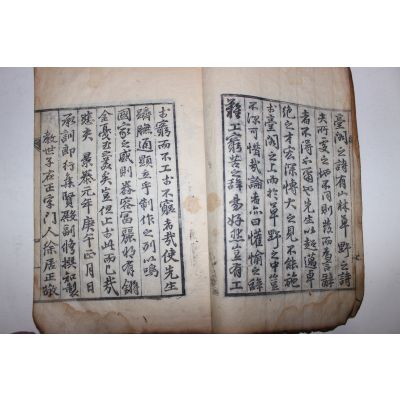 臺閣之詩有山林草野之詩
夫所處之地不同則發而爲言辭
者不得不爾也先生以超邁卓
絶之才宏深博大之見不能施
於臺閣之上而於草野之中豈
不深可惜哉論者亦曰懽愉之辭
難工窮苦之辭易好然豈有工
於窮而不工於不窮者哉使先生
躋膴通顯立乎制作之列以鳴
國家之盛則舂容富麗將有鏘
金戛玉之美矣豈但止於此而已哉
嗟夫 景泰元年庚午正月日
承訓郎行集賢殿副修撰知製
教世子左正字門人徐居正敬